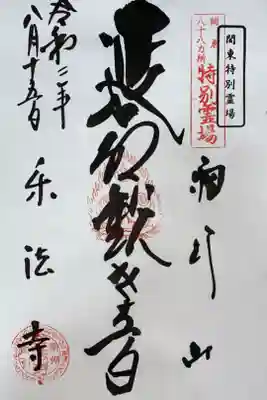 関東特別霊場
関東
八十八カ所
特別霊場
雨引山
延命観世音
楽法寺
令和二年
八月十五日